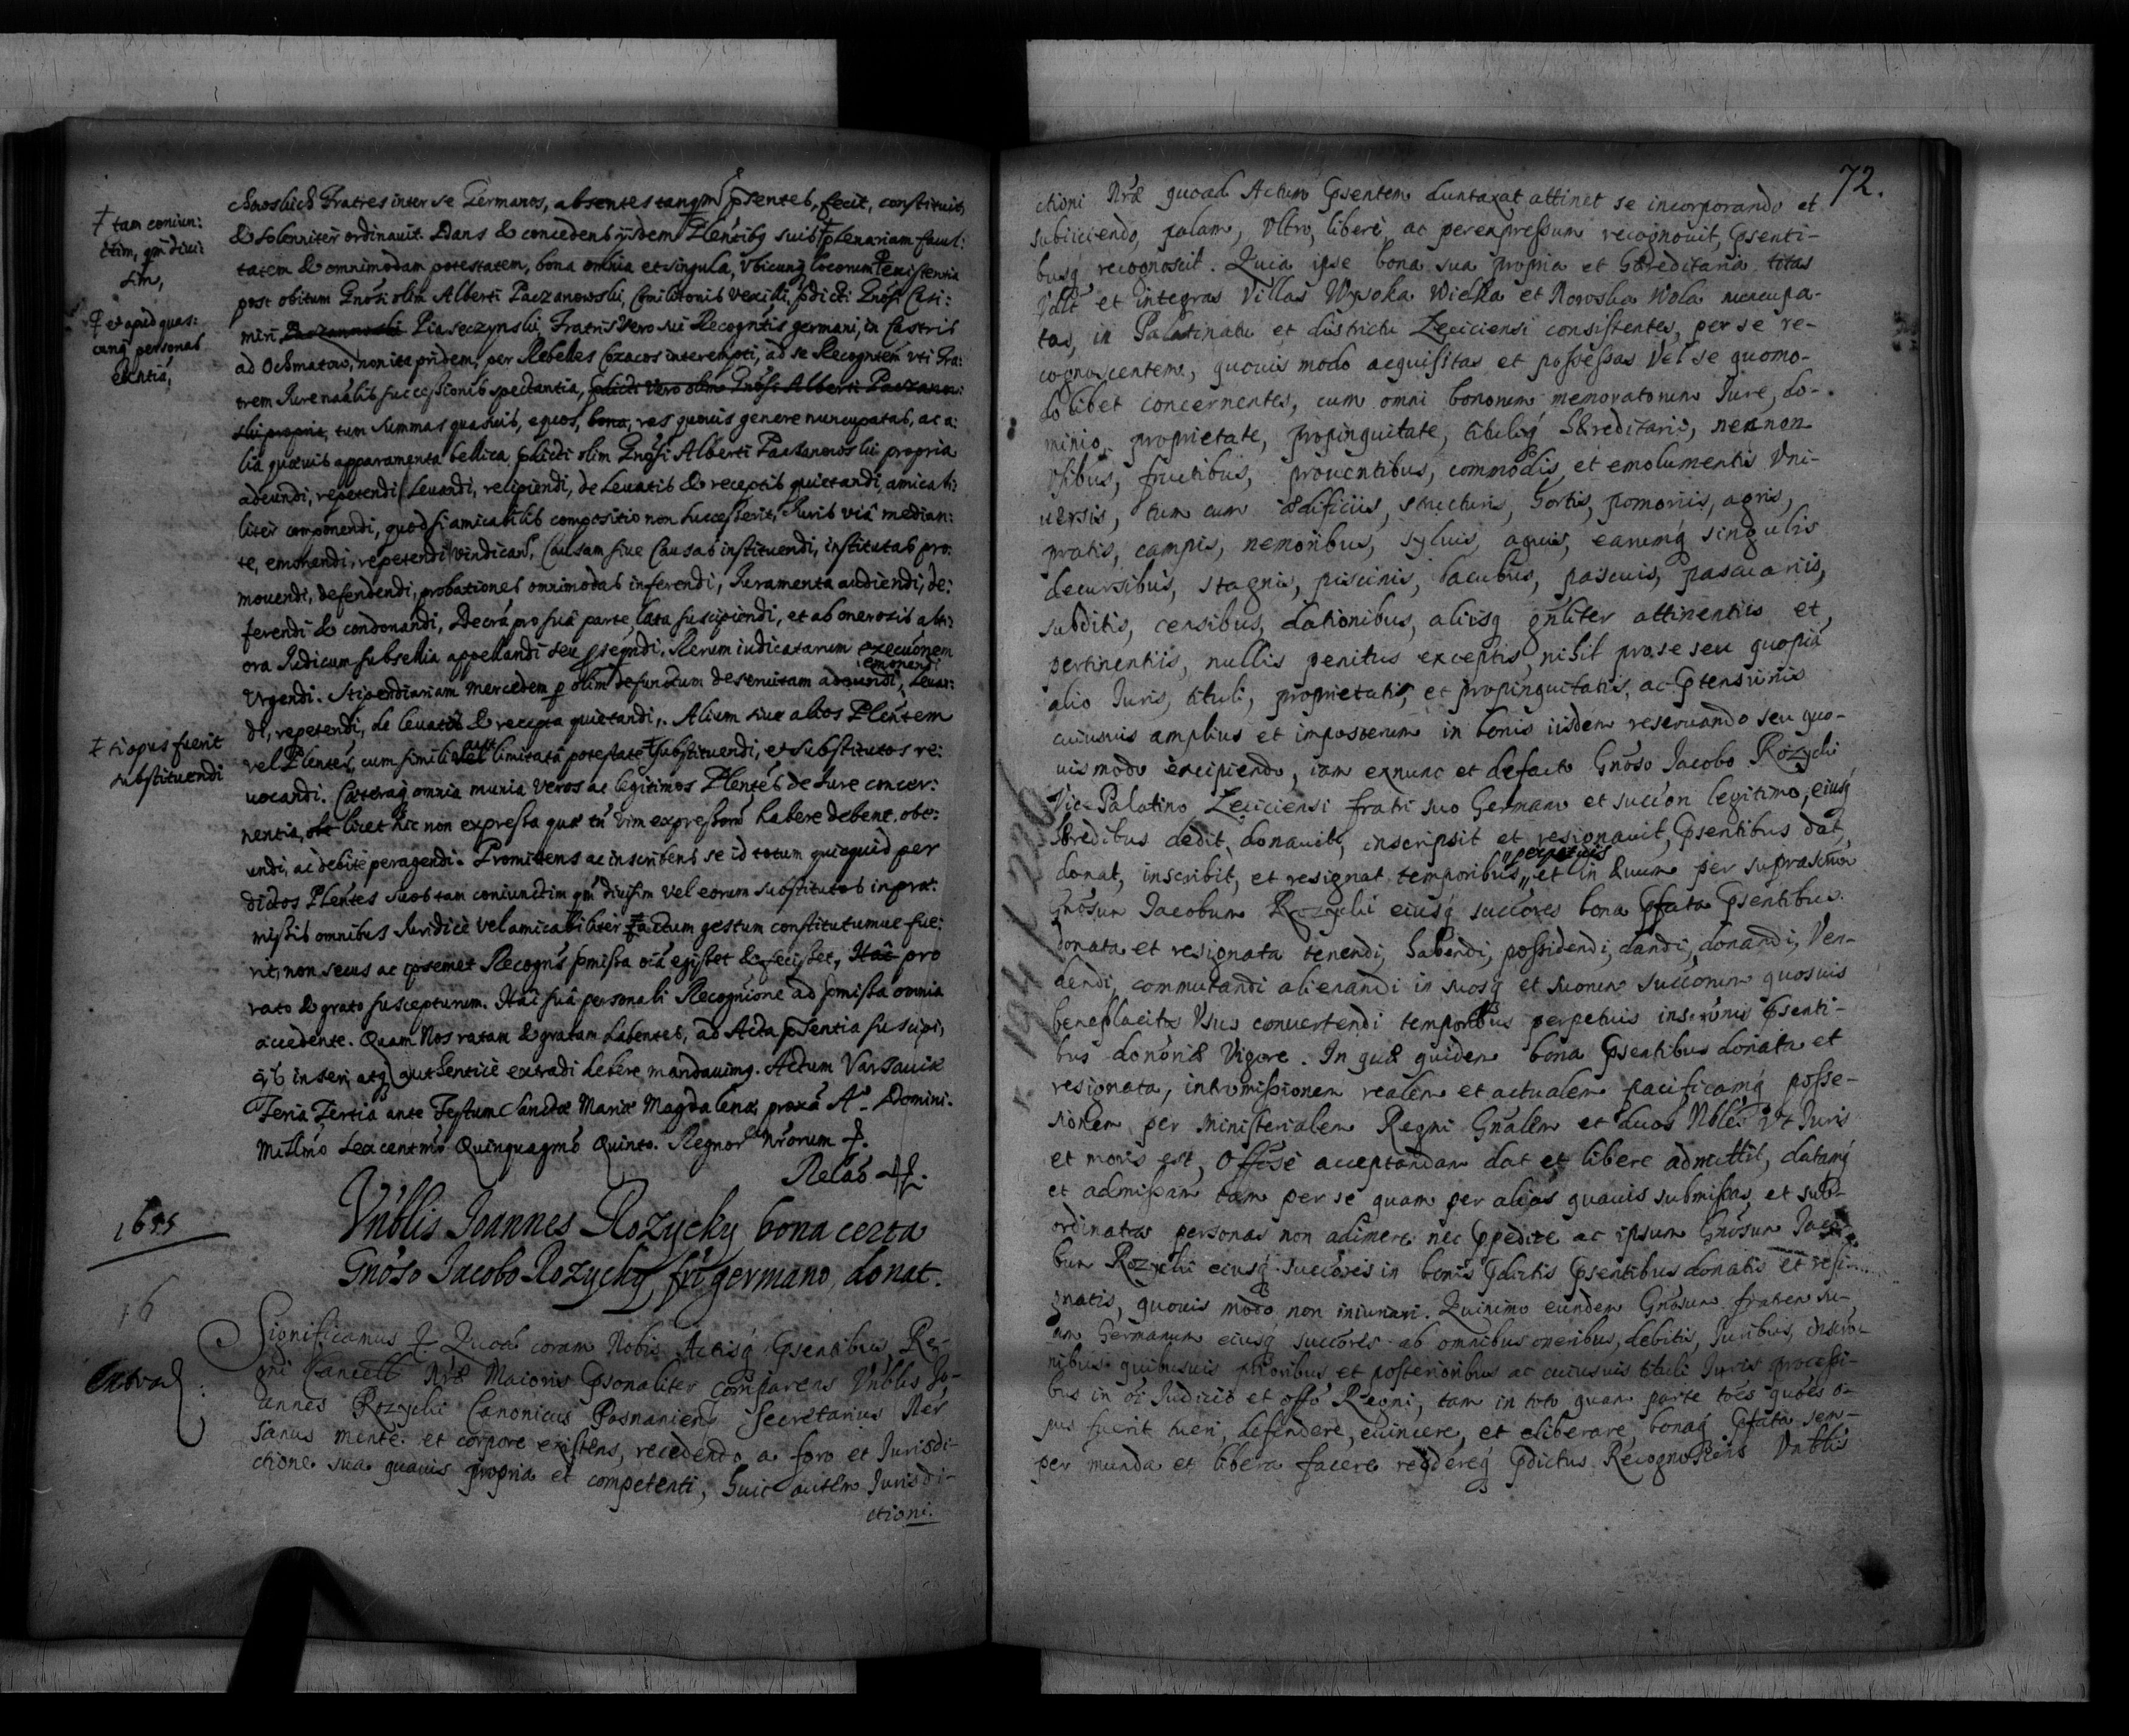 chowskich Fratres inter se Germanos, absentes tanqm̃ p̃sentes, fecit, constituit,
& solenniter ordinauit. Dans & concedens ijsdem Plen̄tibq suis ‡ plenariam facul:
tatem & omnimodam potestatem, bona omnia et singula, vbicunq locorum existentia
post obitum Gn̄osi olim Alberti Paczanowski, Comilitonis vexilli, p̃dicti Gn̄osi Casi:
miri Paczanowski Piaseczynski, Fratris vero sui Recogn̄tis germani, in Castris
ad Ochmatow, non ita pridem, per Rebelles Cozacos interempti, ad se Recogn̄tem vti Fra:
trem Iure n̄aalis successionis spectantia, p̃dicti vero olim Gn̄osi Alberti Paczanow:
ski propria, tum summas quasuis, equos, bona, res quouis genere nuncupatas, ac a:
lia quæuis apparamenta bellica p̃dicti olim Gn̄osi Alberti Paczanowski propria
adeundi, repetendi, leuandi, recipiendi, de leuatis & receptis quietandi, amicabi:
liter componendi, quod si amicabilis compositio non successerit, Iuris viâ median:
te, emonendi, repetendi, vindicandi, Causam siue Causas instituendi, institutas pro:
mouendi, defendendi, probationes omnimodas inferendi, Iuramenta audiendi, de:
ferendi & condonandi, Decr̄a pro suâ parte lata suscipiendi, et ab onerosis ad
ora Iudicum subsellia appellandi seu p̃seqndi, Rerum iudicatarum execuōnem
vrgendi. Stipendiariam mercedem p olim defunctum deseruitam adeundi, emonendi leuan:
di, repetendi, de leuatis & recepta quietandi. Alium siue alios Plen̄tem
vel Plen̄tes, cum simili vel aut limitatâ potestate ‡ substituendi, et substitutos re:
uocandi. Cæteraq omnia munia veros ac legitimos Plen̄tes de Iure concer:
nentia, licet hic non expressa quæ tn̄ vim expressorū habere debent, obe:
undi, ac debitè peragendi. Promittens ac inscribens se id totum quicquid per
dictos Plen̄tes suos tam coniunctim qm̃ diuisim vel eorum substitutos in præ:
missis omnibus Iuridicè vel amicabiliter factum gestum constitutumue fue:
rit, non secus ac ipsemet Recogn̄s p̃missa oīa egisset & fecisset, pro
rato & grato suscepturum. Hac suâ personali Recognitione ad p̃missa omnia
accedente. Quam Nos ratam & gratam habentes, ad Acta p̃sentia suscipi,
ijs inseri atq authenticè extradi debere mandauimq. Actum Varsauiæ
Feria Tertia ante Festum Sanctæ Mariæ Magdalenæ proxâ Aō Domini.
Mill̄mo Sexcentm̄o Quinquagm̄o Quinto. Regnor̄ Nr̄orum &.
Relaō
‡ tam coniun:
ctim, qm̃ diui:
sim,
et apud quas:
cunq personas
‡ si opus fuerit
substituendi
1655
Vn̄blis Ioannes Rozycky bona certa
Gn̄oso Iacobo Rozycky fr̄i germano donat.
16
Extrad:
Significamus &. Quod coram Nobis Actisq p̃sentibus Re-
gni Cancell Nr̄æ Maioris p̃sonaliter comparens Vn̄blis Jo-
annes Rozycki Canonicus Posnaniens Secretarius Ner
sanus mente et corpore existens, recedendo a foro et Iurisdi-
ctione sua quauis propria et competenti, huic autem Iurisdi-
ctioni.
72.
ctioni Nr̄æ quoad Actum p̃sentem duntaxat attinet se incorporando et
subiiciendo, palam, vltro, liberè, ac per expressum recognouit, p̃senti-
busq recognoscit. Quia ipse bona sua propria et hæreditaria totas
vdlt et integras Villas Wysoka Wielka et Nowoska Wola nuncupa-
tas, in Palatinatu et districtu Lęciciensi consistentes, per se re-
cognoscentem, quouis modo acquisitas et possessas vel se quomo-
dolibet concernentes, cum omni bonorum memoratorum Iure, do-
minio, proprietate, propinquitate, tituloq hæreditario, nec non
vsibus, fructibus, prouentibus, commodis, et emolumentis vni-
uersis, tum cum ædificiis, structuris, hortis, pomariis, agris,
pratis, campis, nemoribus, syluis, aquis, earumq singulis
decursibus, stagnis, piscinis, lacubus, pascuis, pascuariis,
subditis, censibus, dationibus, aliisq gn̄liter attinentiis et
pertinentiis, nullis penitus exceptis, nihil pro se seu quopiā
alio Iuris, tituli, proprietatis, et propinquitatis, ac p̃tensionis
cuiusuis amplius et imposterum in bonis iisdem reseruando seu quo-
uis modo excipiendo, iam exnunc et defacto Gn̄oso Iacobo Rozycki
Vice Palatino Lęciciensi fratri suo Germano et succōri legitimo, eiusq
hæredibus dedit, donauit, inscripsit et resignauit, p̃sentibus dat,
donat, inscribit, et resignat temporibus „perpetuis„ et in æuum per suprascrm̄
Gn̄osum Iacobum Rozycki eiusq succōres bona p̃fata p̃sentibus
donata et resignata tenendi, habendi, possidendi, dandi, donandi, ven-
dendi, commutandi alienandi in suosq et suorum succōrum quosuis
beneplacitos vsus conuertendi temporibus perpetuis inscr̄onis p̃senti-
bus donōnis vigore. In quæ quidem bona p̃sentibus donata et
resignata, intromissionem realem et actualem pacificamq posse-
sionem per Ministerialem Regni Gn̄alem et duos Nbles vt Iuris
et moris est, Offōsè acceptandam dat et libere admittit, datamq
et admissam tam per se quam per alias quauis submissas, et sub-
ordinatas personas non adimere nec p̃pedire ac ipsum Gn̄osum Iaco-
bum Rozycki eiusq succōres in bonis p̃dictis p̃sentibus donatis et resi-
gnatis, quouis modo non iniuriari. Quinimo eundem Gn̄osum fratrem su-
um Germanum eiusq succōres ab omnibus oneribus, debitis, Iuribus, inscrōi-
nibus quibusuis prioribus et posterioribus ac cuiusuis tituli Iuris processi-
bus in oī Iudicio et offō Regni, tam in toto quam parte toēs quoēs o-
pus fuerit tueri, defendere, euincere, et eliberare, bonaq p̃fata sem-
per munda et libera facere reddereq p̃dictus Recognoscens Vn̄blis